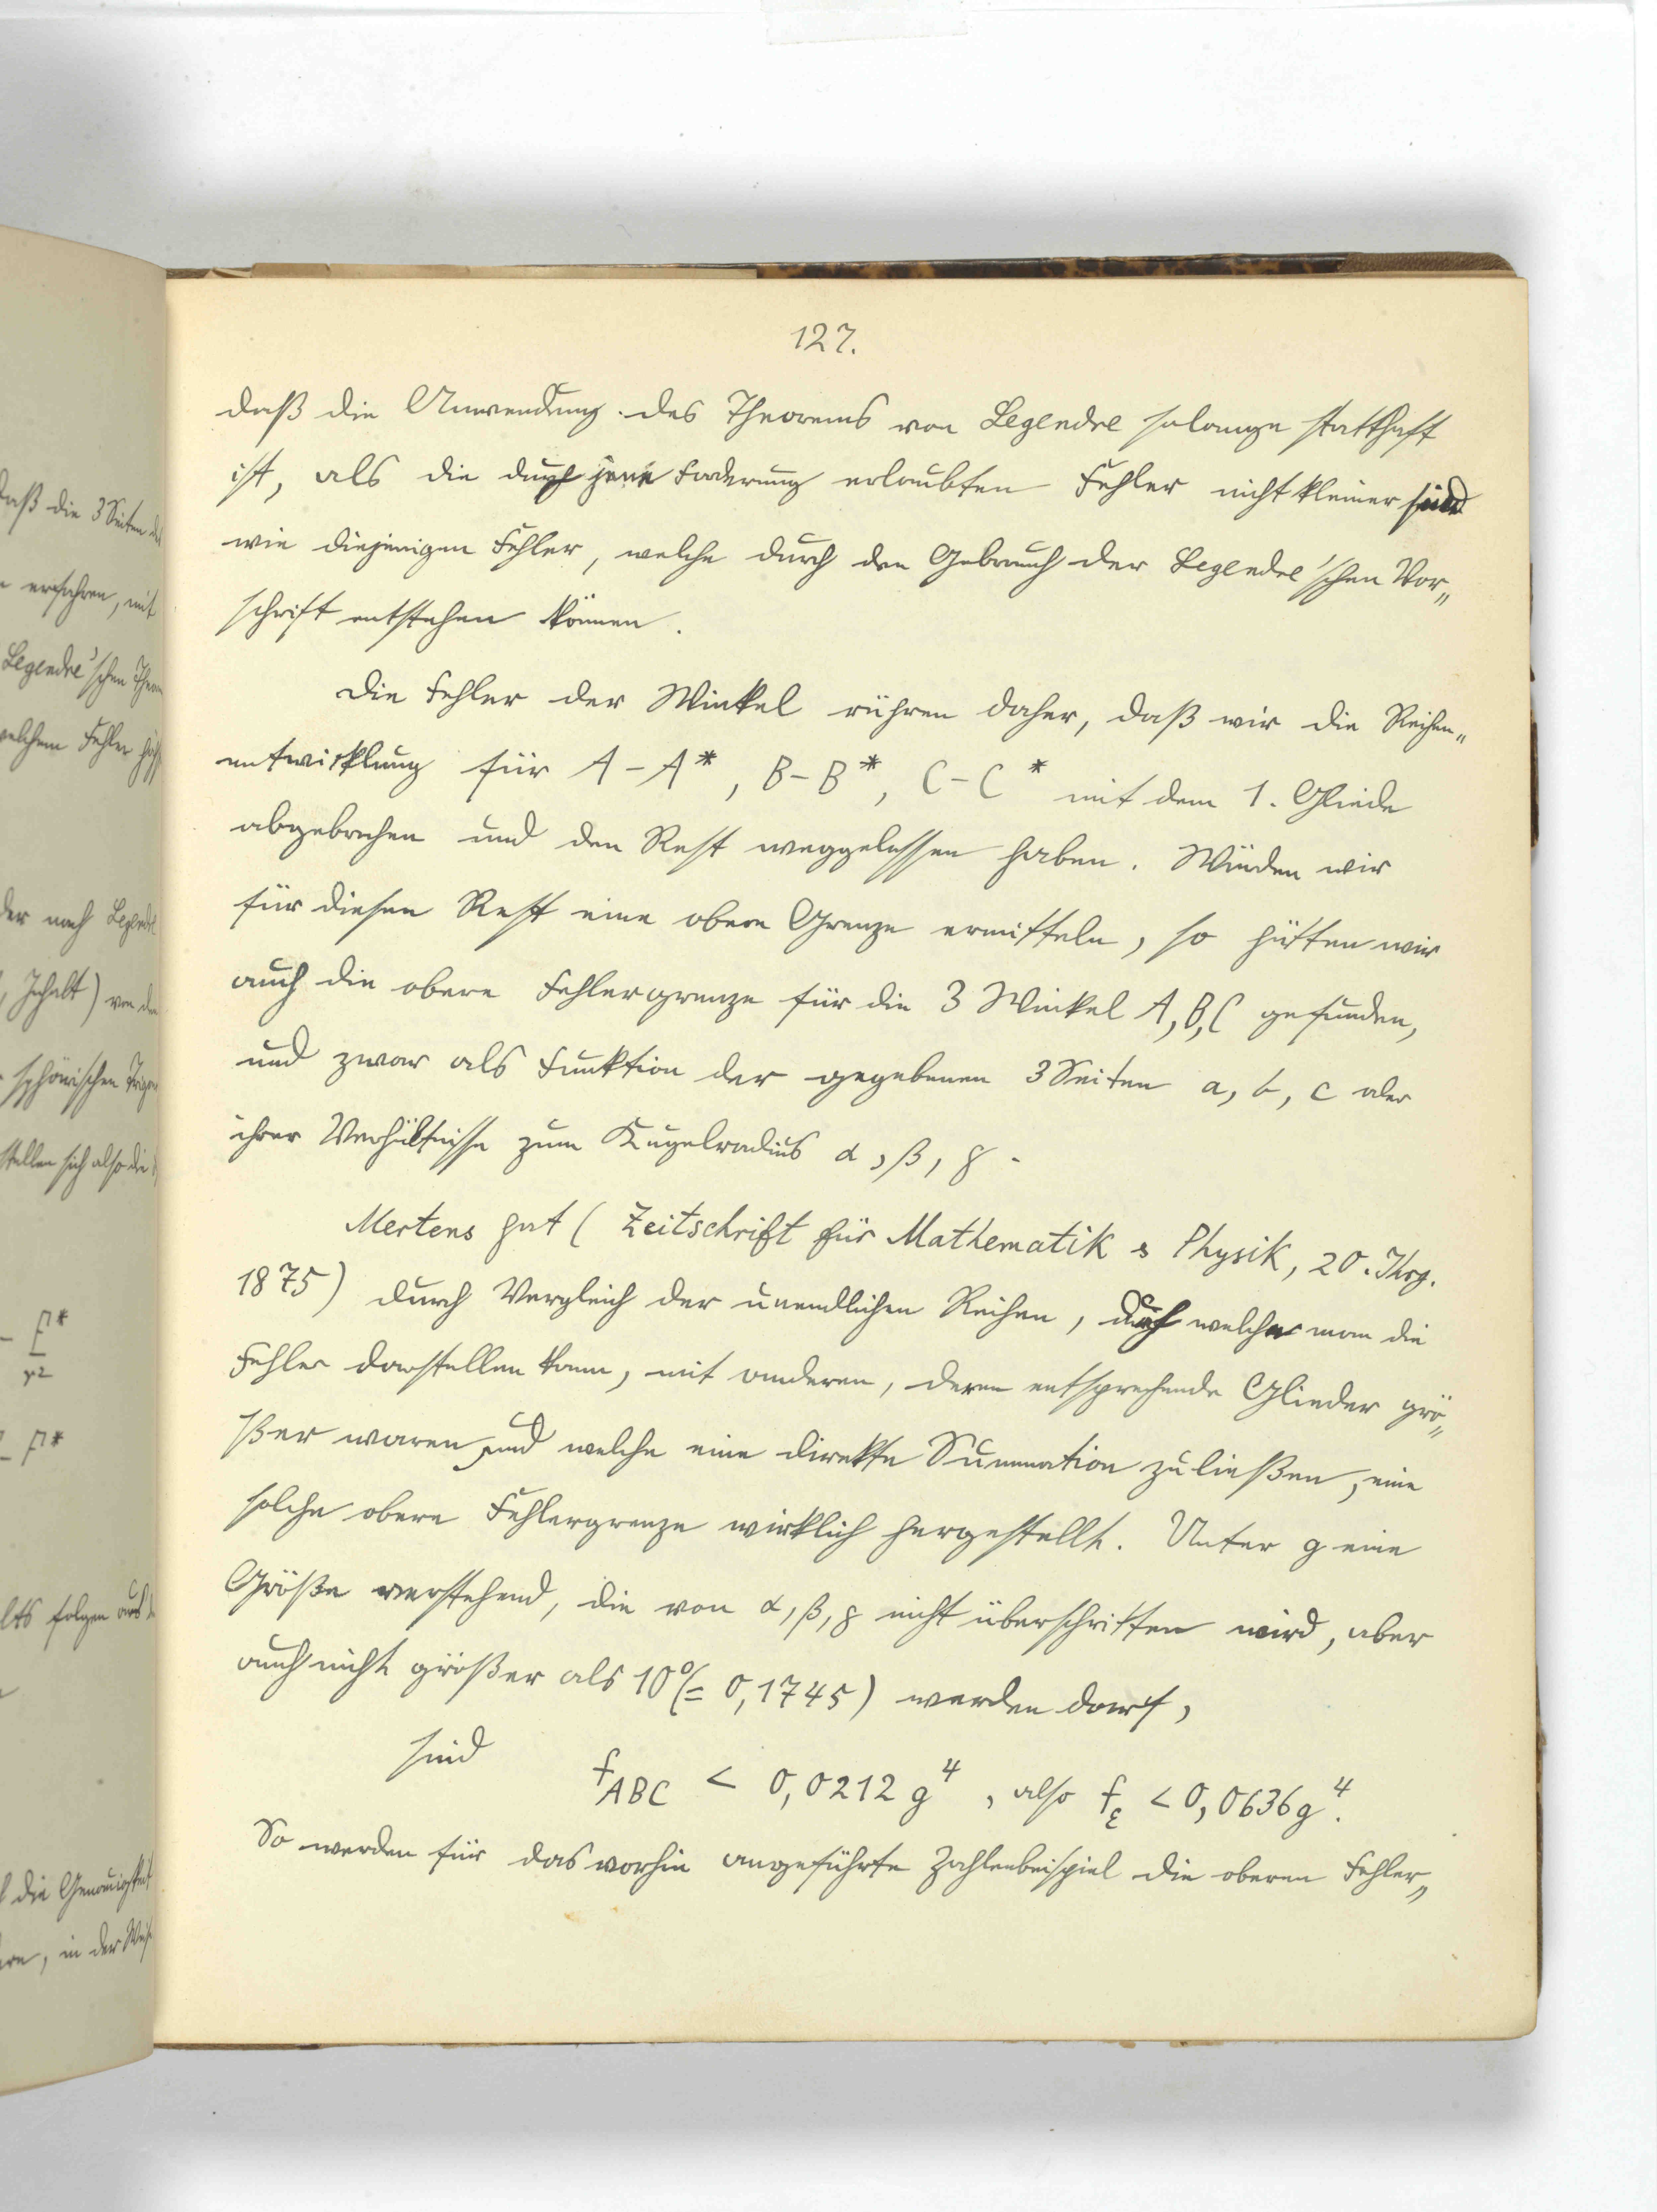 127.
daß die Anwendung des Theorems von Legendre solange statthaft
ist, als die durch jene Forderung erlaubten Fehler nicht kleiner sind
wie diejenigen Fehler, welche durch den Gebrauch der Legendre'schen Vor„
schrift entstehen können.
Die Fehler der Winkel rühren daher, daß wir die Reihen„
entwicklung für A-A*, B-B*, C-C* mit dem 1. Gliede
abgebrochen und den Rest weggelassen haben. Würden wir
für diesen Rest eine obere Grenze ermitteln, so hätten wir
auch die obere Fehlergrenze für die 3 Winkel A, B, C gefunden,
und zwar als Funktion der gegebenen 3 Seiten a, b, c oder
ihrer Verhältnisse zum Kugelradius α, β, γ.
Mertens hat (Zeitschrift für Mathematik & Physik, 20. Jhrg.
1875) durch Vergleich der unendlichen Reihen, durch welche man die
Fehler darstellen kann, mit anderen, deren entsprechende Glieder grö„
ßer waren, und welche eine direkte Summation zuließen, eine
solche obere Fehlergrenze wirklich hergestellt. Unter g eine
Größe verstehend, die von α, β, γ nicht überschritten wird, aber
auch nicht größer als 10° (= 0,1745) werden darf,
sind f_ABC < 0,0212 g⁴, also f_ε < 0,0636 g⁴.
So werden für das vorhin angeführte Zahlenbeispiel die oberen Fehler„
daß die 3 Seiten
erfahren, mit
Legendre'schen
welchem Fehler
der nach
Inhalt) von
sphärischen
stellen sich also die
- E*
r²
- F*
folgen aus
die Genauigkeit
in der